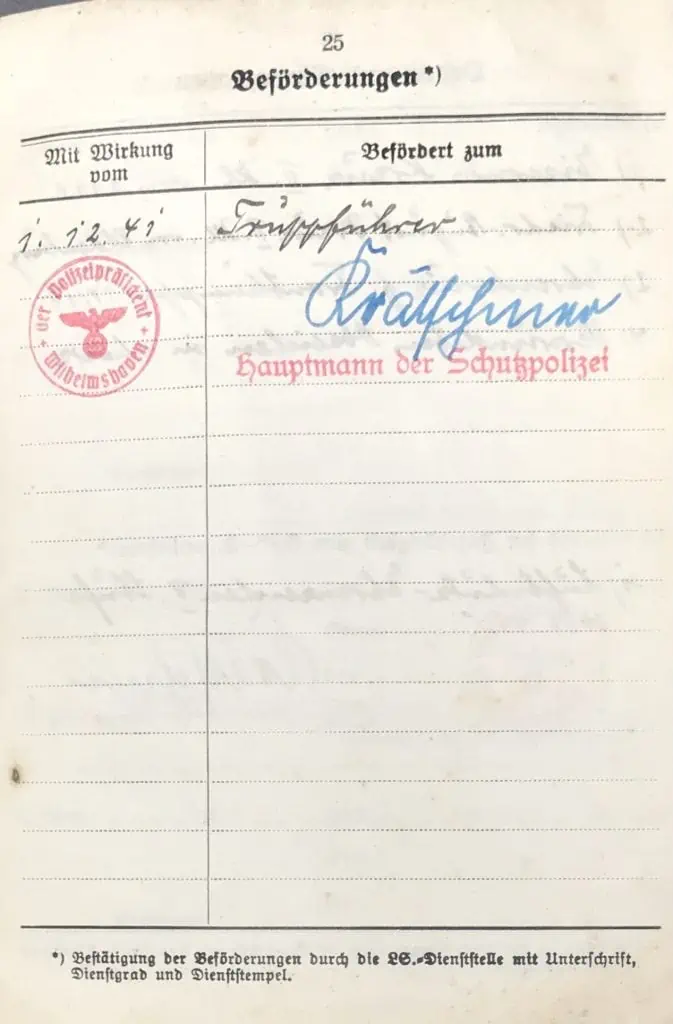 25
Beförderungen*)
Mit Wirkung
vom
Befördert zum
1. 12. 41
Truppführer
Der Polizeipräsident
Wilhelmshaven
Krätschmer
Hauptmann der Schutzpolizei
*) Bestätigung der Beförderungen durch die LS.-Dienststelle mit Unterschrift,
Dienstgrad und Dienststempel.